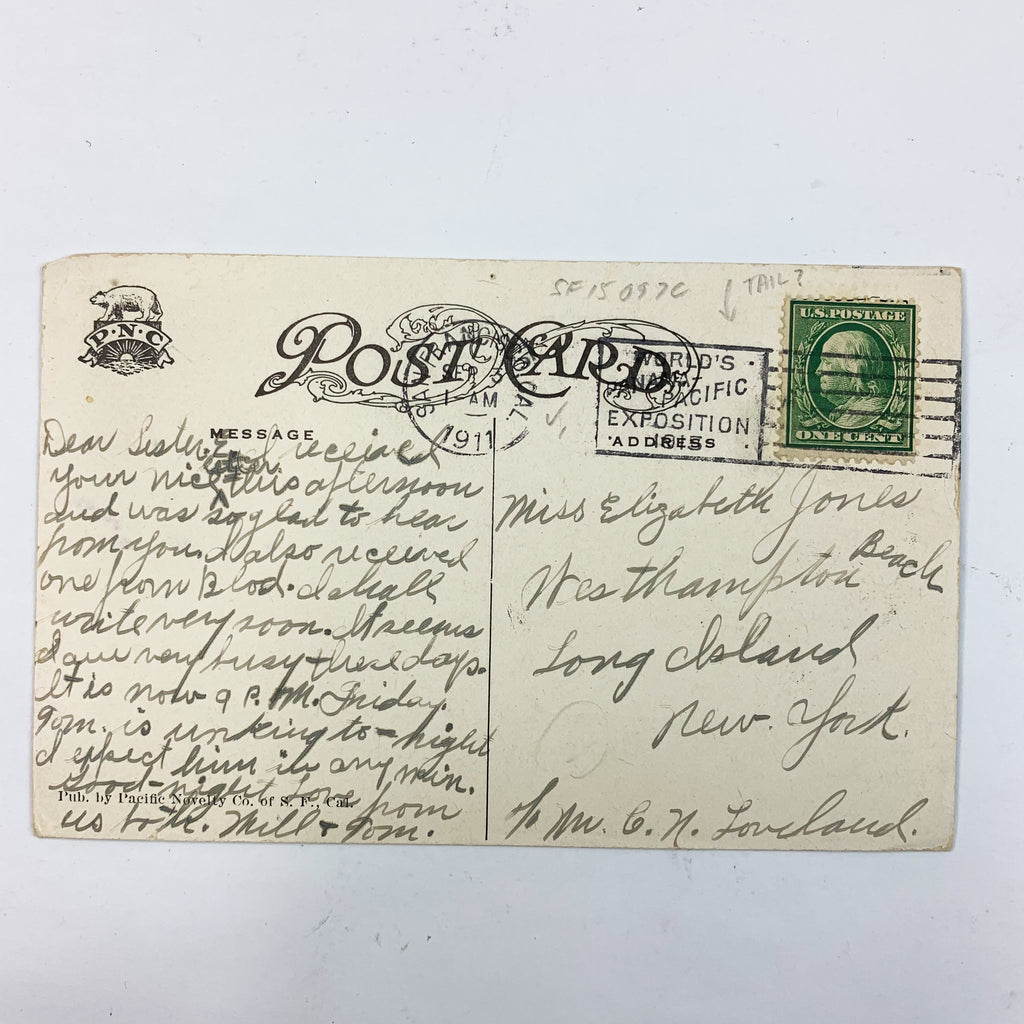 SF 15 097C
TAIL?
P·N·C
POST CARD
SAN FRANCISCO, CAL.
SEP
AM
1911
WORLD'S
PANAMA-PACIFIC
EXPOSITION
U.S. POSTAGE
ONE CENT
MESSAGE
Dear Sister: I received
your nice letter this afternoon
and was so glad to hear
from you. I also received
one from Blod. I shall
write very soon. It seems
I am very busy these days.
It is now 9 P.M. Friday.
Tom. is working to-night
I expect him in any min.
Good-night Love from
us both. Mill + Tom.
Pub. by Pacific Novelty Co. of S. F., Cal.
ADDRESS
Miss Elizabeth Jones
Westhampton Beach
Long Island
New. York.
℅ Mr. C. N. Loveland.